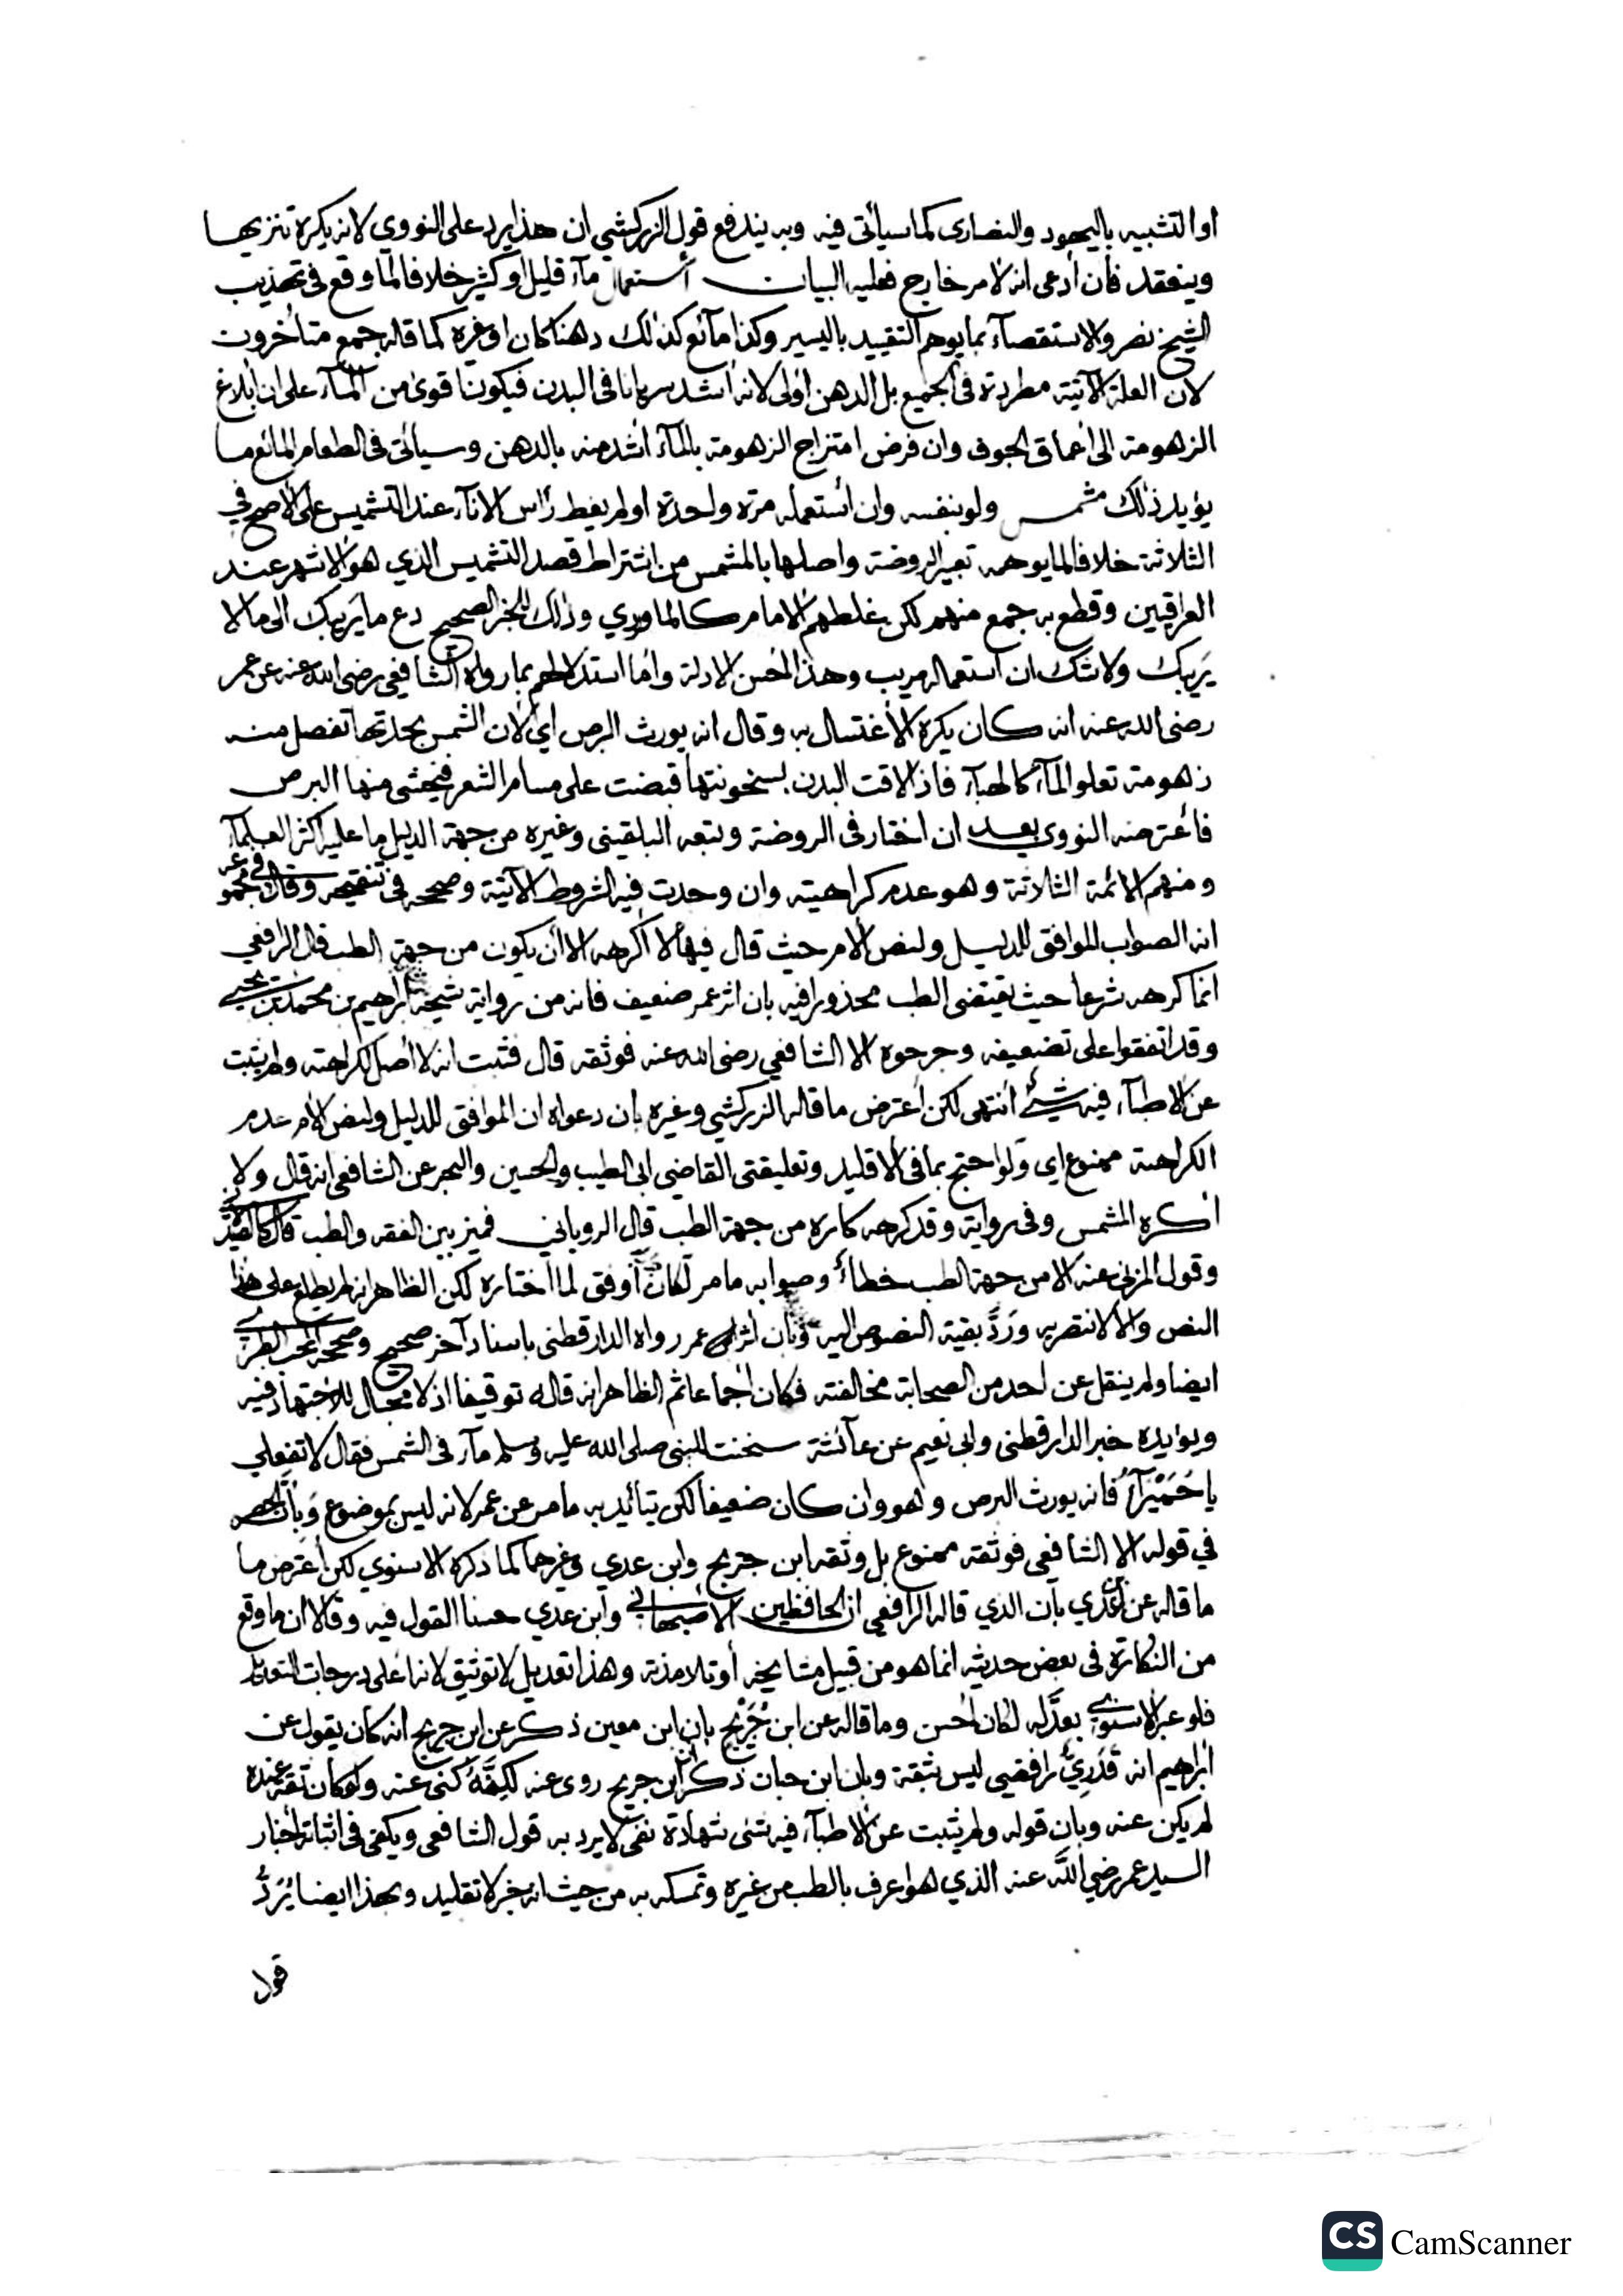 او التشبيه باليهود والنصارى كما سيأتى فيه وبه يندفع قول الزركشي ان هذا يرد على النووي لانه يكره تنزيها
وينعقد فان أدعى انه لامر خارج فعليه البيان أستعمال مآء قليل او كثير خلافا لما وقع فى تهذيب
الشيخ نصر والاستقصآء بما يوهم التقييد باليسير وكذا مآئع كذلك دهنا كان او غيره كما قاله جمع متأخرون
لان العلة الآتية مطردة فى الجميع بل الدهن اولى لانه أشد سريانا فى البدن فيكون اقوى من المآء على ان ابلاغ
الزهومة الى أعماق الجوف وان فرض امتزاج الزهومة بالمآء أشد منه بالدهن وسيأتى فى الطعام المائع ما
يؤيد ذلك مشمس ولو بنفسه وان أستعمله مرة واحدة او لم يغط رأس الانآء عند التشميس على الأصح في
الثلاثة خلافا لما يوهمه تعبير الروضة واصلها بالمشمس من اشتراط قصد التشميس الذي هو الاشهر عند
العراقيين وقطع به جمع منهم لكن غلطهم الامام كالماوردي وذلك للخبر الصحيح دع ما يريبك الى ما لا
يَريبك ولا شك ان استعماله مريب وهذا احسن الادلة وأما استدلالهم بما رواه الشافعي رضى الله عنه عن عمر
رضى الله عنه انه كان يكره الأغتسال به وقال انه يورث البرص اي لان الشمس بحدتها تفصل منه
زهومة تعلو المآء كالهبآء فاذا لاقت البدن بسخونتها قبضت على مسام الشعر فيخشى منها البرص
فأعترضه النووي بعد ان اختار فى الروضة وتبعه البلقينى وغيره من جهة الدليل ما عليه اكثر العلمآء
ومنهم الائمة الثلاثة وهو عدم كراهيته وان وجدت فيه الشروط الآتية وصححه فى تنقيحه وقال فى مجموعه
انه الصواب الموافق للدليل ولنص الام حيث قال فيها لا أكرهه الا أن يكون من جهة الطب قال الرافعي
انما كرهه شرعا حيث يقتضى الطب محذورا فيه بان اثر عمر ضعيف فانه من رواية شيخه ابراهيم بن محمد بن يحيى
وقد اتفقوا على تضعيفه وجرحوه الا الشافعي رضى الله عنه فوثقه قال فثبت انه لا أصل لكراهته ولم يثبت
عن الاطبآء فيه شيئ أنتهى لكن أعترض ما قاله الزركشي وغيره بان دعواه ان الموافق للدليل ولنص الام عدم
الكراهة ممنوع اي وَلو احتج بما فى الاقليد وتعليقتى القاضى ابى الطيب والحسين والبحر عن الشافعى انه قال ولا
أكره المشمس وفى رواية وقد كرهه كاره من جهة الطب قال الرويانى فميز بين الفقه والطب قال
وقول المزنى عنه الا من جهة الطب خطاء وصوابه ما مر لكان أوفق لما اختاره لكن الظاهر انه لم يطلع على هذا
النص والا لانتصر به ورَدَّ بقية النصوص اليه وبان اثر عمر رواه الدارقطنى باسناد آخر صحيح وصححه المحب الطبري
ايضا ولم ينقل عن احد من الصحابة مخالفته فكان اجماعا ثم الظاهر انه قاله توقيفا اذ لا مجال للأجتهاد فيه
ويؤيده خبر الدارقطنى وابى نعيم عن عآئشة سخنت للنبى صلى الله عليه وسلم مآء فى الشمس فقال لا تفعلي
يا حُمَيْرآءُ فانه يورث البرص وهو وان كان ضعيفا لكن يتأيد به ما مر عن عمر لانه ليس بموضوع وَبأن الحصر
في قوله الا الشافعى فوثقه ممنوع بل وثقه ابن جريج وابن عدي وغيرهما كما ذكره الاسنوي لكن اعترض ما
ما قاله عن عدي بأن الذي قاله الرافعي ان الحافظين الاصبهانى وابن عدي حسنا القول فيه وقالا ان ما وقع
من النكارة فى بعض حديثه انما هو من قبيل مشايخه أو تلامذته وهذا تعديل لا توثيق لانه أعلى درجات التعديل
فلو عبر الاسنوي بعدَّله لكان احسن وما قاله عن ابن جُرَيْج بان ابن معين ذكر عن ابن جريج انه كان يقول عن
ابراهيم انه قدَرِيٌّ رافضي ليس بثقة وبان ابن حبان ذكر ان ابن جريج روى عنه لكِنَّهُ كنى عنه ولو كان ثقة عنده
لم يكن عنه وبان قوله ولم يثبت عن الاطبآء فيه شئ شهادة نفى لا يرد به قول الشافعى ويكفى فى اثباته أخبار
السيد عمر رضي اللّه عنه الذي هو اعرف بالطب من غيره وتمسكه به من حيث انه خبر لا تقليد وبهذا ايضا يُرَدُّ
قول
CS CamScanner